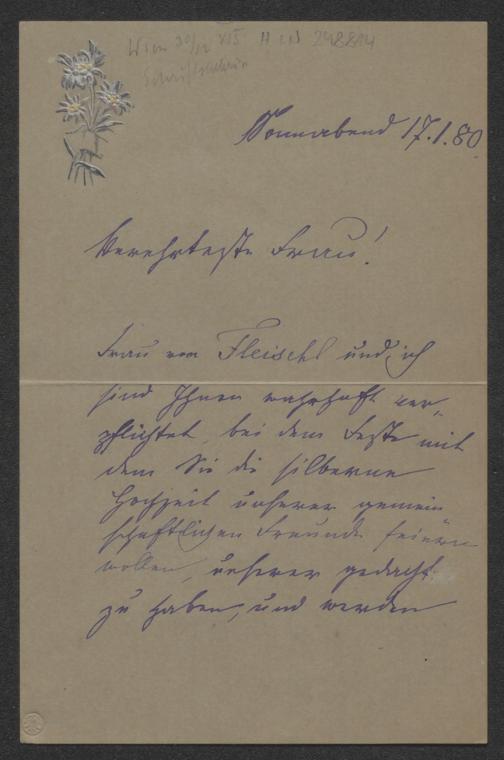 Wien 30/12 XI5 H I N 248814
Schriftstellerin
Sonnabend 17.1.80.
Verehrteste Frau!
Frau von Fleischl und ich
sind Ihnen wahrhaft ver-
pflichtet, bei dem Feste mit
dem Sie die silberne
Hochzeit unserer gemein
schaftlichen Freunde feiern
wollen, unserer gedacht
zu haben, und werden